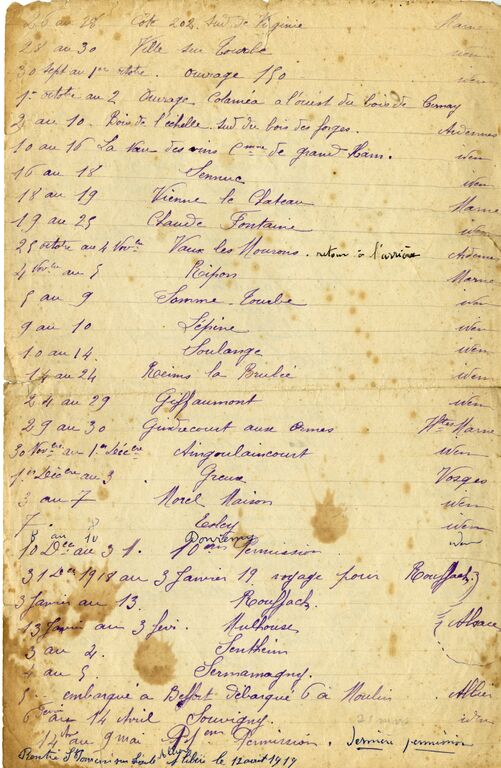 26 au 28 Côte 202. sud de Virginie Marne
28 au 30 Ville sur Tourbe idem
30 Sept au 1er octobre. ouvrage 150 idem
1er octobre au 2 Ouvrage à l'ouest du bois de Cernay
2 au 10. Bois de l'échelle sud du bois des forges. Ardennes
10 au 16 La des vins Cmne de grand Ham. idem
16 au 18 Sennuc idem
18 au 19 Vienne le Chateau Marne
19 au 25 Chaude Fontaine idem
25 octobre au 4 Novbre Vaux les Mourons. retour à l'arrière Ardenne
4 Novbre au 5 Ripon Marne
5 au 9 Somme Tourbe idem
9 au 10 Lépine idem
10 au 14. Soulange idem
14 au 24 Reims la Brulée idem
24 au 29 Giffaumont idem
29 au 30 aux Ormes Htes Marne
30 Novbre au 1er Décbre Aingoulaincourt idem
1er Décbre au 3. Greux Vosges
3 au 7 Morel Maison idem
7. Esley idem
8 au 10 Domremy idem
10 Dec au 31. 10 ème Permission.
31 Dec 1918 au 3 Janvier 19 voyage pour Rouffach.
3 Janvier au 13. Rouffach.
13 Janvier au 3 fevr. Mulhouse Alsace
3 au 4. Sentheim
4 au 5 Sermamagny.
5. embarqué a Belfort débarqué 6 à Moulin. Allier
6 au 14 Avril Souvigny. idem
14 au 9 mai Permission. dernière permission
Rentré libéré le 12 aout 1919